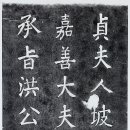 貞夫人坡
嘉善大夫
承旨洪公